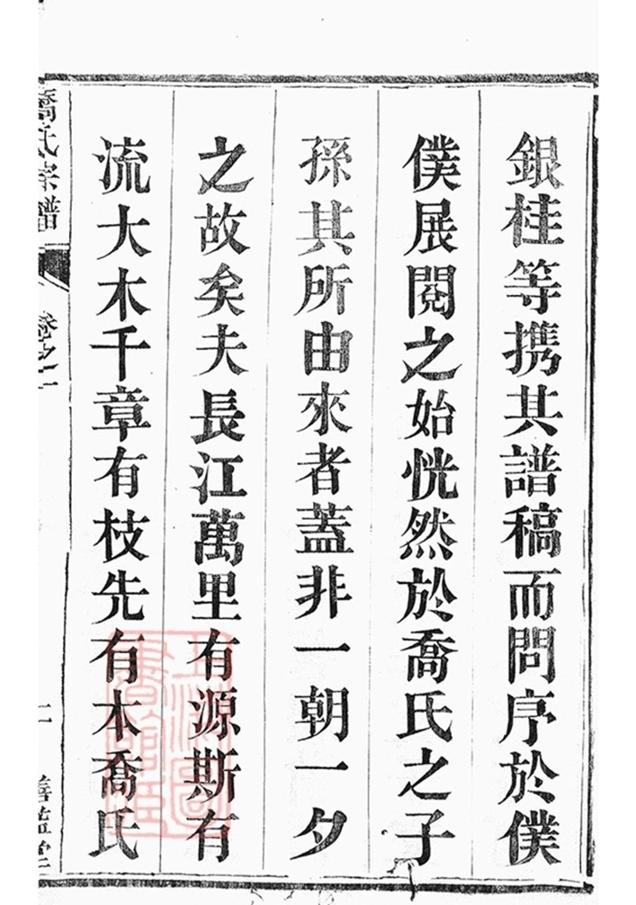 銀桂等携其譜稿而問序於僕
僕展閱之始恍然於喬氏之子
孫其所由來者蓋非一朝一夕
之故矣夫長江萬里有源斯有
流大木千章有枝先有本喬氏
喬氏宗譜
卷之一
二